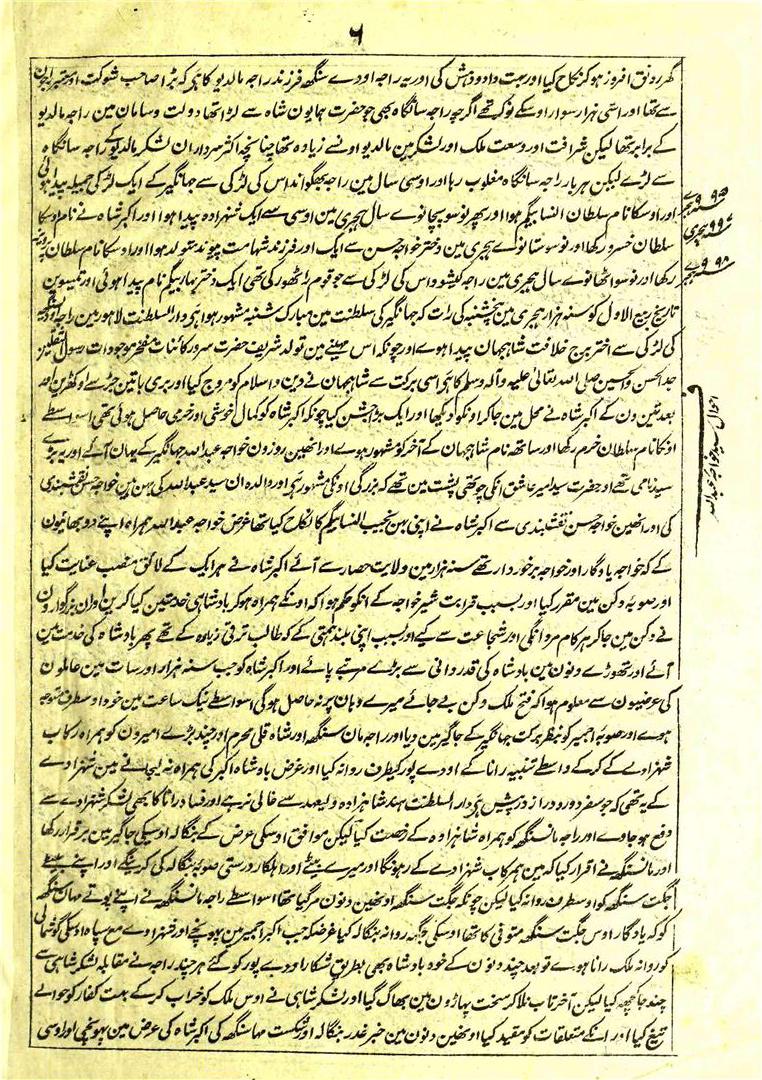 ۶
گھر رونق افروز ہو کر نکاح کیا اور بہت داد و دہش کی اور یہ راجہ اودے سنگھ فرزند راجہ مالدیو کا ہی کہ بڑا صاحب شوکت اور معتبر راجون
سے تھا اور اسی ہزار سوار اوسکے نوکر تھے اگرچہ راجہ سانگا بھی جو حضرت ہمایون شاہ سے لڑا تھا دولت و سامان مین راجہ مالدیو
کے برابر تھا لیکن شرافت اور وسعت ملک اور لشکر مین مالدیو اوسنے زیادہ تھا چنانچہ اکثر سرداران لشکر مالدیو کے راجہ سانگا
سے لڑے لیکن ہر بار راجہ سانگا مغلوب رہا اور اوسی سال مین راجہ بھگوانداس کی لڑکی سے جہانگیر کے ایک لڑکی جمیلہ پیدا ہوئی
اور اوسکا نام سلطان النسا بیگم ہوا اور پھر نو سو پچانوے سال ہجری مین اوسی سے ایک شہزادہ پیدا ہوا اور اکبر شاہ نے نام اوسکا
سلطان خسرو رکھا اور نو سو ستانوے ہجری مین دختر خواجہ حسن سے ایک اور فرزند شہامت پیوند متولد ہوا اور اوسکا نام سلطان پرویز
رکھا اور نو سو اٹھانوے سال ہجری مین راجہ کیشو داس کی لڑکی سے جو قوم راٹھور کی تھی ایک دختر بہار بیگم نام پیدا ہوئی اور تیسوین
تاریخ ربیع الاول کو سنہ ہزار ہجری مین پنجشنبہ کی رات کہ جہانگیر کی سلطنت مین مبارک شنبہ مشہور ہوا ہی دار السلطنت لاہور مین راجہ اودیسنگھ
کی لڑکی سے اختر برج خلافت شاہجہان پیدا ہوے اور چونکہ اس مہینے مین تولد شریف حضرت سرور کائنات مفخر موجودات رسول الثقلین
جد الحسن والحسین صلی اللہ تعالی علیہ وآلہ وسلم کا ہی اسی برکت سے شاہجہان نے دین و اسلام کو مروج کیا اور بری باتین جڑ سے اوکھڑین اور
بعد تین دن کے اکبر شاہ نے محل مین جا کر اونکو دیکھا اور ایک بڑا جشن کیا چونکہ اکبر شاہ کو کمال خوشی اور خرمی حاصل ہوئی تھی اسواسطے
اونکا نام سلطان خرم رکھا اور ساتھ نام شاہجہان کے آخر کو مشہور ہوے اور انھین روزون خواجہ عبداللہ جہانگیر کے یہان آئے اور یہ بڑے
سید نامی تھے اور حضرت سید امیر عاشق انکی چوتھی پشت مین تھے کہ بزرگی اونکی مشہور ہی اور والدہ ان سید عبداللہ کی بہن مین خواجہ حسن نقشبندی
کی اور انھین خواجہ حسن نقشبندی سے اکبر شاہ نے اپنی بہن نجیب النسا بیگم کا نکاح کیا تھا غرض خواجہ عبداللہ ہمراہ اپنے دو بھائیون
کے کہ خواجہ یادگار اور خواجہ برخوردار تھے سنہ ہزار مین ولایت حصار سے آئے اکبر شاہ نے ہر ایک کے لائق منصب عنایت کیا
اور صوبہ دکن مین مقرر کیا اور بسبب قرابت شیر خواجہ کے انکو حکم ہوا کہ اونکے ہمراہ ہو کر بادشاہی خدمتین کیا کرین اوان بزرگوارون
نے دکن مین جا کر ہر کام مردانگی اور شجاعت سے کیے اور بسبب اپنی بلند ہمتی کے کہ طالب ترقی زیادہ کے تھے پھر بادشاہ کی خدمت مین
آئے اور تھوڑے دنون مین بادشاہ کی قدردانی سے بڑے مرتبے پائے اور اکبر شاہ کو جب سنہ ہزار اور سات مین عاملون
کی عرضیون سے معلوم ہوا کہ فتح ملک دکن بے جائے میرے وہان پر نہ حاصل ہوگی اسواسطے نیک ساعت مین خود اوسطرف متوجہ
ہوے اور صوبہ اجمیر کو بنظر برکت جہانگیر کے جاگیر مین دیا اور راجہ مان سنگھ اور شاہ قلی محرم اور چند بڑے امیرون کو ہمراہ رکاب
شہزادے کے کر کے واسطے تنبیہ رانا کے اودے پور کیطرف روانہ کیا اور غرض بادشاہ اکبر کی ہمراہ نہ لیجانے مین شہزادے
کے یہ تھی کہ جو سفر دور و دراز درپیش ہی دار السلطنت ہند شاہزادہ ولیعہد سے خالی نرہے اور فساد رانا کا بھی لشکر شہزادے سے
دفع ہو جاوے اور راجہ مانسنگھ کو ہمراہ شاہزادہ کے رخصت کیا لیکن موافق اوسکی عرض کے بنگالہ اوسیکی جاگیر مین برقرار رکھا
اور مانسنگھ نے اقرار کیا کہ مین ہمرکاب شہزادے کے رہونگا اور میرے بیٹے اور اہلکار درستی صوبہ بنگالہ کی کرینگے اور اپنے بیٹے
جگت سنگھ کو اوسطرف روانہ کیا لیکن چونکہ جگت سنگھ اونھین دنون مر گیا تھا اسواسطے راجہ مانسنگھ نے اپنے پوتے مہان سنگھ
کو کہ یادگار اوس جگت سنگھ متوفی کا تھا اوسکی جگہ روانہ بنگالہ کیا غرضکہ جب اکبر اجمیر مین پہونچے اور شہزادے مع سپاہ اوسکی گوشمالی
کو روانہ ملک رانا ہوے تو بعد چند دنون کے خود بادشاہ بھی بطریق شکار اودے پور کو گئے ہر چند راجہ نے مقابلہ لشکر شاہی سے
چند جا گچھ کیا لیکن آخر تاب نلا کر سخت پہاڑون مین بھاگ گیا اور لشکر شاہی نے اوس ملک کو خراب کر کے بہت کفار کو حوالے
تیغ کیا اور انکے متعلقات کو مقید کیا اونھین دنون مین خبر غدر بنگالہ اور شکست مہا سنگھ کی اکبر شاہ کی عرض مین پہونچی اور اوسی
۹۹۵ ہجری
۹۹۷ ہجری
۹۹۸ ہجری
احوال سید خواجہ عبداللہ